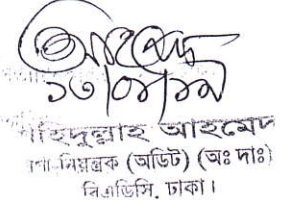 ১৩/০৮/১৯
হিদুল্লাহ আহমেদ
নিয়ন্ত্রক (অডিট) (অঃ দাঃ)
বিএডিসি, ঢাকা।